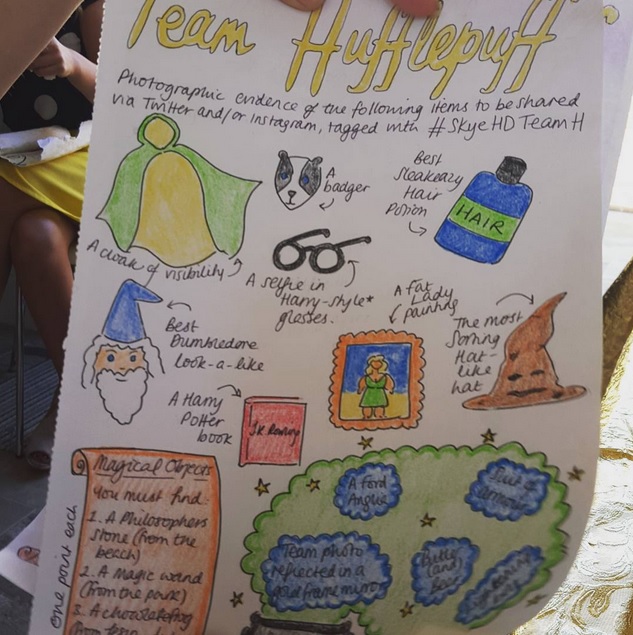 Team Hufflepuff
Photographic evidence of the following items to be shared
via Twitter and/or Instagram, tagged with #SkyeHDTeamH
A cloak of visibility
A
badger
Best
Sleakeazy
Hair
Potion
HAIR
A selfie in
Harry-style*
glasses.
Best
Dumbledore
look-a-like
A Fat
Lady
painting
The most
Sorting
Hat-
like
hat
A Harry
Potter
book
JK Rowling
Magical Objects
You must find:
1. A Philosophers
stone (from the
beach)
2. A Magic wand
(from the park)
3. A chocolate frog
(from
one point each
A Ford
Anglia
Suit of
armour
Team photo
reflected in a
gold frame mirror
Butter
(and)
Beer
Lightning